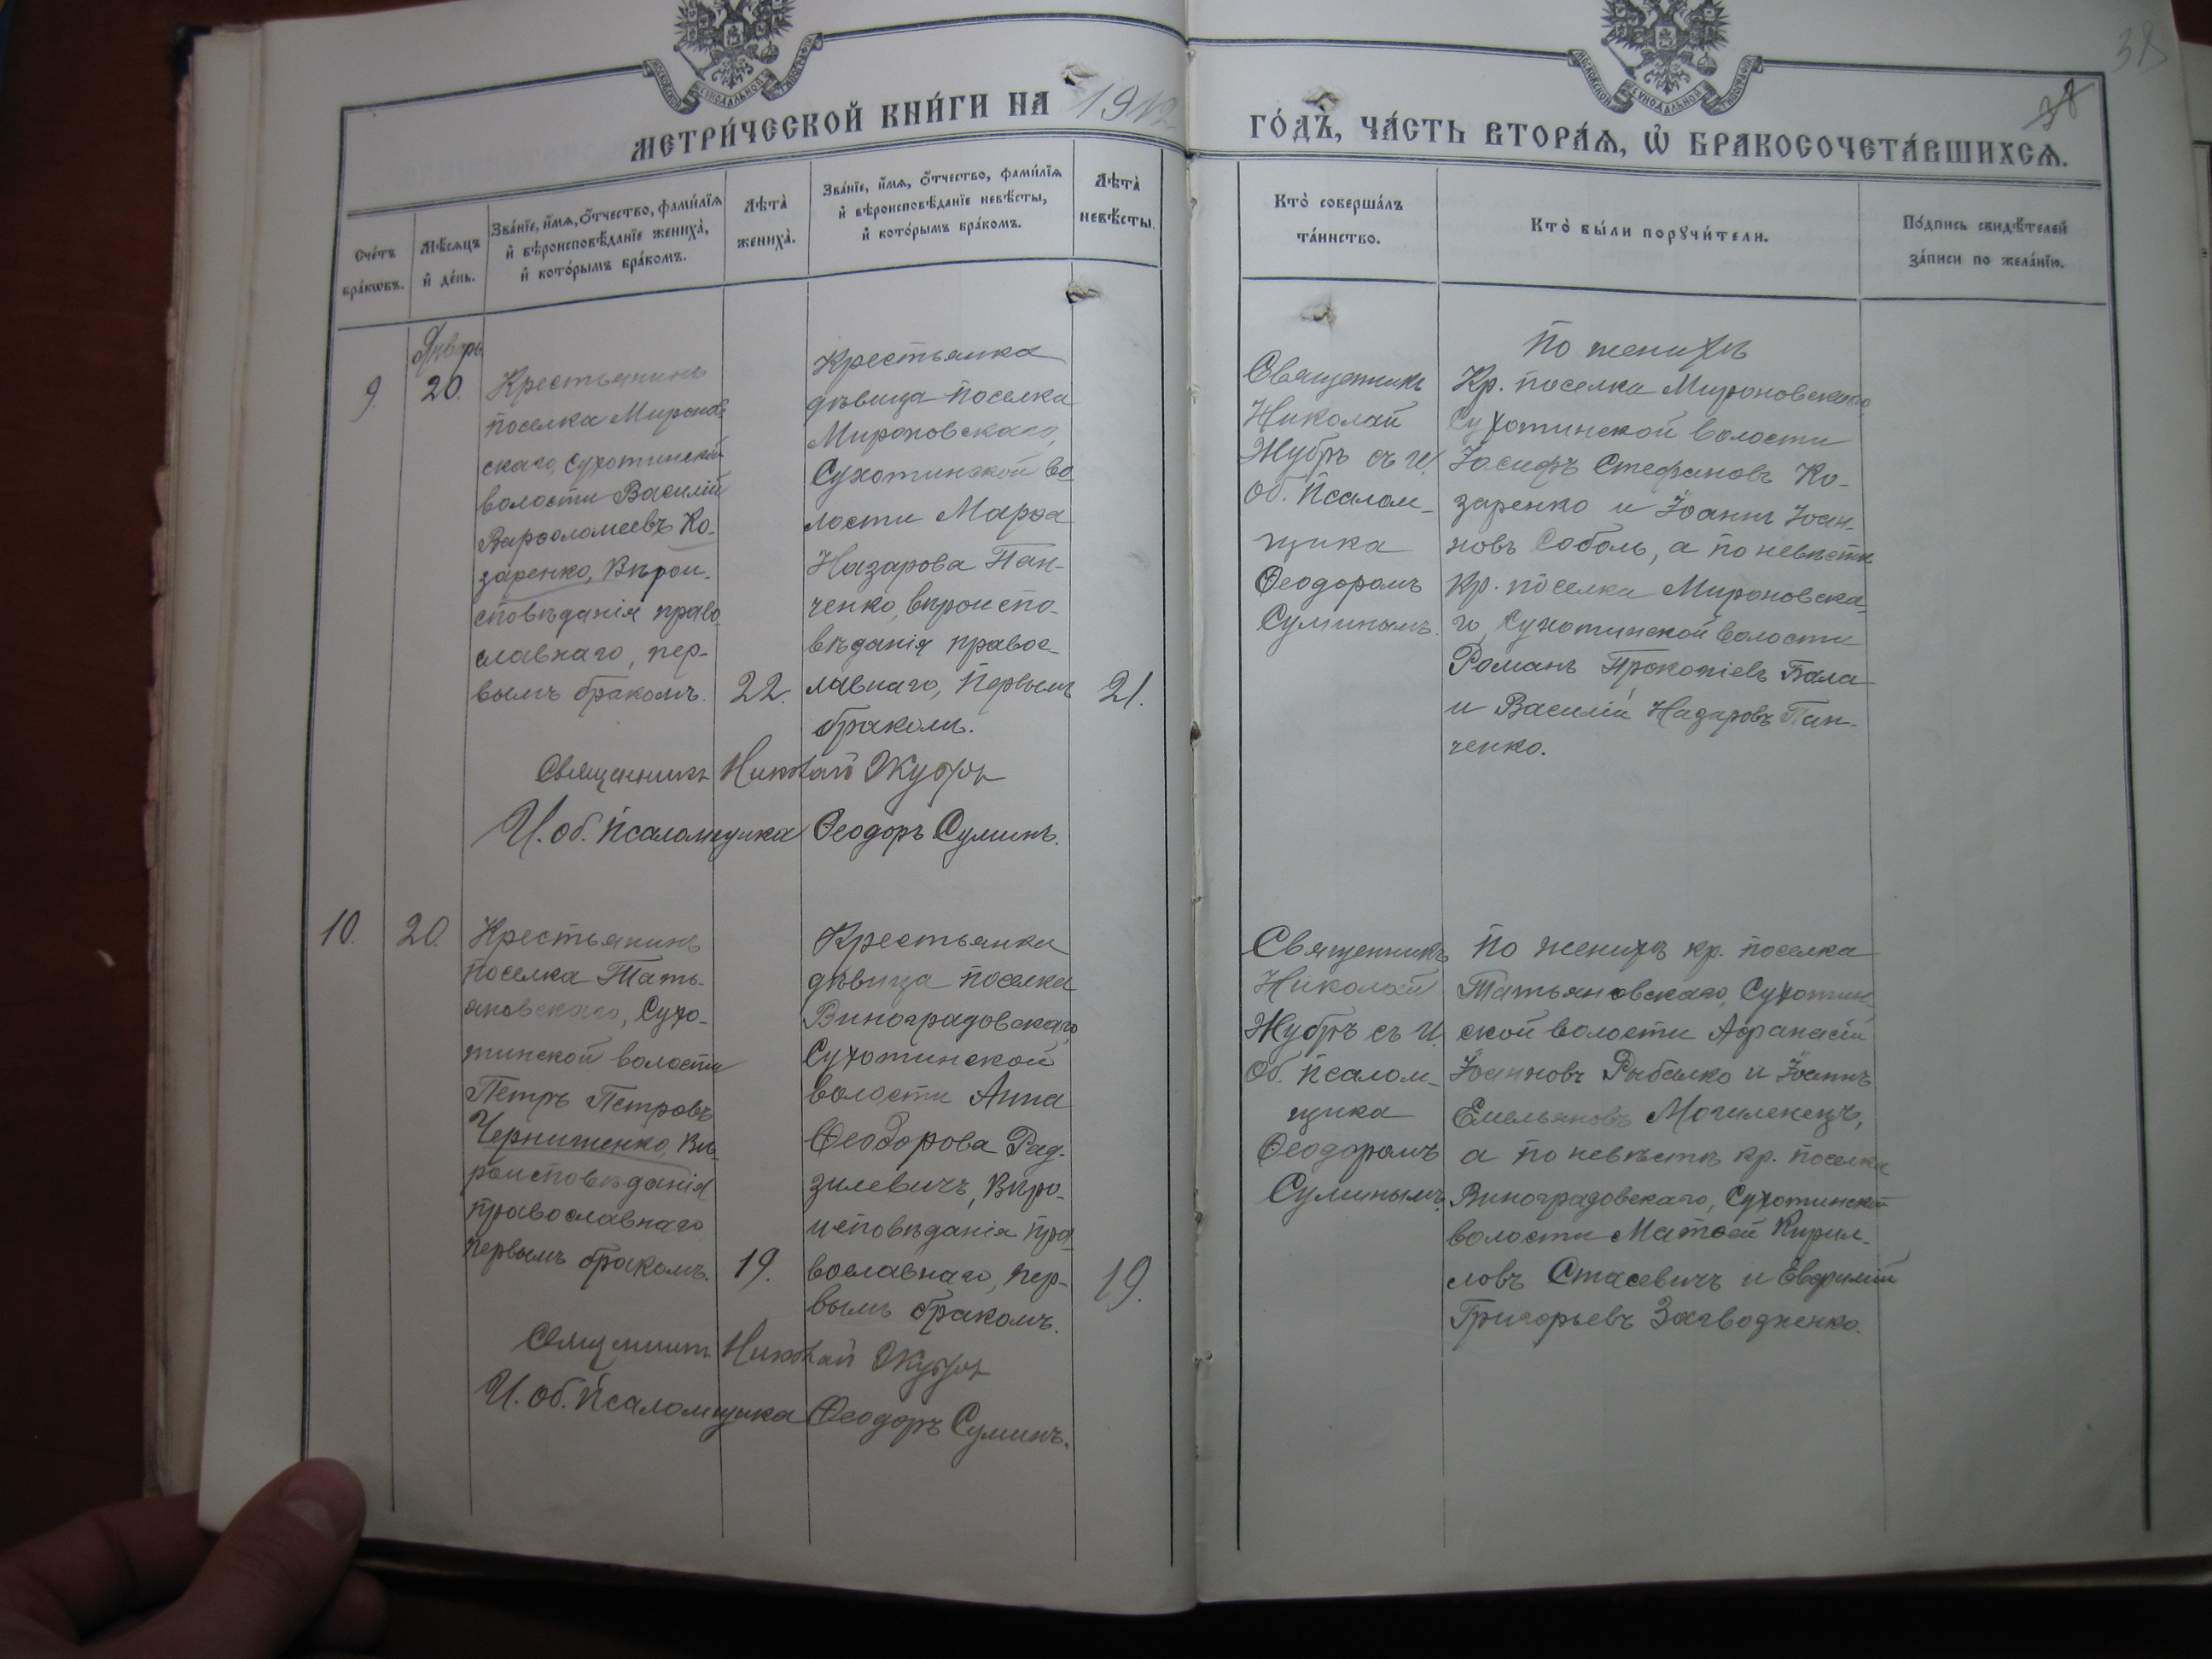 МОСКОВСКОЙ СѴНОДАЛЬНОЙ ТИПОГРАФІИ
МОСКОВСКОЙ СѴНОДАЛЬНОЙ ТИПОГРАФІИ
38
38
МЕТРИ́ЧЕСКОЙ КНИ́ГИ НА 1912
ГО́ДЪ, ЧА́СТЬ ВТОРА́Ѧ, Ѡ҆ БРАКОСОЧЕТА́ВШИХСѦ.
Сче́тъ
бра́кѡвъ.
Мѣ́сѧцъ
и҆ де́нь.
Зва́нїе, и҆́мѧ, ѻ҆́тчество, фами́лїѧ
и҆ вѣроисповѣ́данїе жениха̀,
и҆ кото́рымъ бра́комъ.
Лѣта̀
жениха̀.
Зва́нїе, и҆́мѧ, ѻ҆́тчество, фами́лїѧ
и҆ вѣроисповѣ́данїе невѣ́сты,
и҆ кото́рымъ бра́комъ.
Лѣта̀
невѣ́сты.
Кто̀ соверша́лъ
та́инство.
Кто̀ бы́ли порꙋчи́тели.
По́дпись свидѣ́телей
за́писи по жела́нїю.
Январь
9.
20.
Крестьянинъ
поселка Миронов
скаго, Сухотинской
волости Василій
Варѳоломеевъ Ко-
заренко, вѣрои-
сповѣданія право
славнаго, пер-
вымъ бракомъ.
22.
Крестьянка
дѣвица поселка
Мироновскаго,
Сухотинской во
лости Марѳа
Назарова Пан-
ченко, вѣроиспо-
вѣданія правос-
лавнаго, первымъ
бракомъ.
21.
Священникъ
Николай
Жубръ съ И.
Об. Псалом-
щика
Ѳеодоромъ
Суминымъ.
По женихѣ
Кр. поселка Мироновскаго,
Сухотинской волости
Іосифъ Стефановъ Ко-
заренко и Іоаннъ Іоан-
новъ Соболь, а по невѣстѣ
кр. поселка Мироновска-
го, Сухотинской волости
Романъ Прокопіевъ Бала
и Василій Назаровъ Пан-
ченко.
Священникъ Николай Жубръ
И. Об. Псаломщика Ѳеодоръ Суминъ.
10.
20.
Крестьянинъ
поселка Тать-
яновскаго, Сухо-
тинской волости
Петръ Петровъ
Черниченко, вѣ-
роисповѣданія
православнаго
первымъ бракомъ.
19.
Крестьянка
дѣвица поселка
Виноградовскаго,
Сухотинской
волости Анна
Ѳеодорова Рад-
зилевичъ, вѣро-
исповѣданія пра
вославнаго, пер-
вымъ бракомъ.
19.
Священникъ
Николай
Жубръ съ И.
Об. Псалом-
щика
Ѳеодоромъ
Суминымъ.
По женихѣ кр. поселка
Татьяновскаго, Сухотин
ской волости Аѳанасій
Іоанновъ Рыбалко и Іоаннъ
Емельяновъ Могиленецъ,
а по невѣстѣ кр. поселка
Виноградовскаго, Сухотинской
волости Матѳей Кирил-
ловъ Стасевичъ и Евфимій
Григорьевъ
Священникъ Николай Жубръ
И. Об. Псаломщика Ѳеодоръ Суминъ.